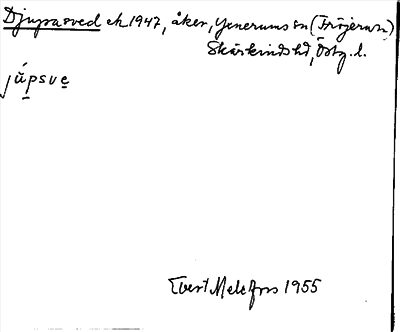 Djuprasved ek 1947, åker, Yxnerums sn (Fröjerum)
Skärkinds hd, Östg. l.
júpsve
Evert Melefors 1955